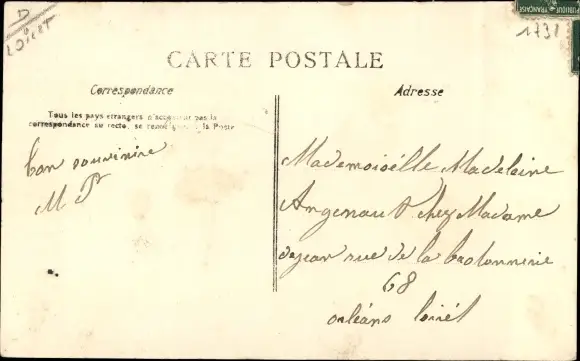 D
Loiret
PUBLIQUE FRANÇAISE
1731
CARTE POSTALE
Correspondance
Adresse
Tous les pays étrangers n'acceptent pas la
correspondance au recto, se renseigner à la Poste
bon souvenire
M P
Mademoiselle Madeleine
chez Madame
dejean rue de la bretonnerie
68
orléans loirét